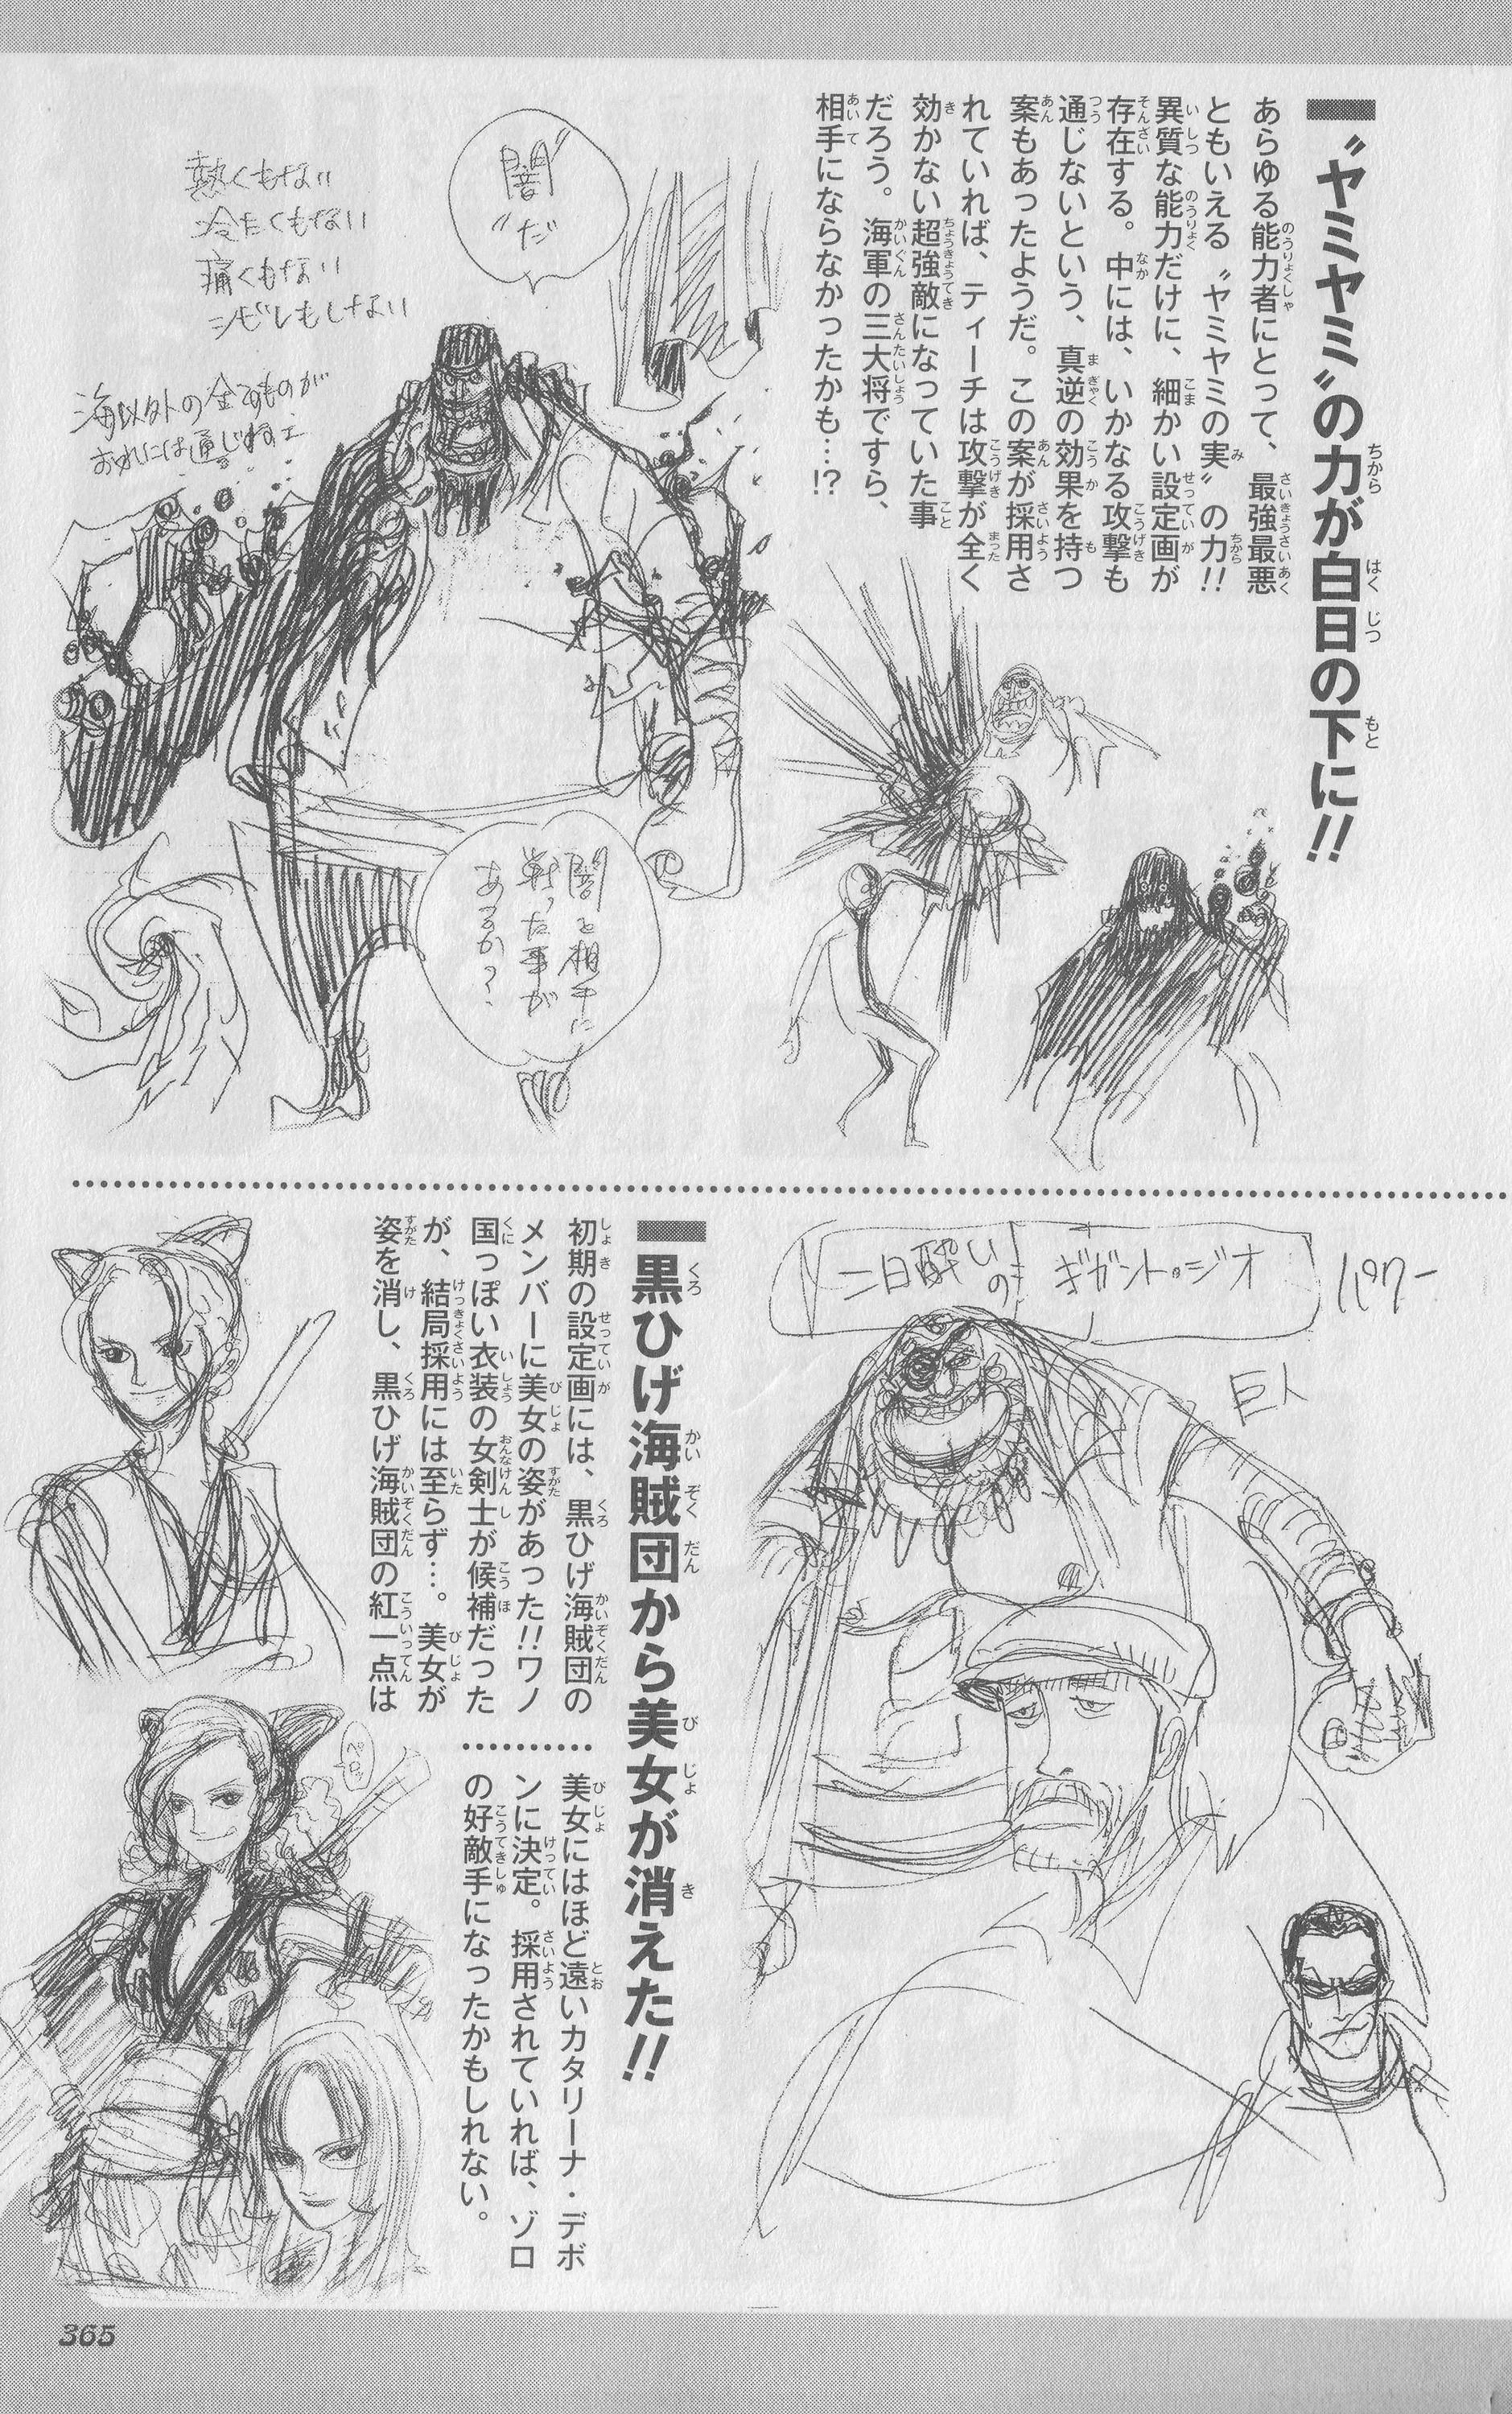 〝ヤミヤミ〟の力が白日の下に!!
あらゆる能力者にとって、最強最悪
ともいえる〝ヤミヤミの実〟の力!!
異質な能力だけに、細かい設定画が
存在する。中には、いかなる攻撃も
通じないという、真逆の効果を持つ
案もあったようだ。この案が採用さ
れていれば、ティーチは攻撃が全く
効かない超強敵になっていた事
だろう。海軍の三大将ですら、
相手にならなかったかも…!?
〝闇〟だ
熱くもない
冷たくもない
痛くもない
シビレもしない
海以外の全てのものが
おれには通じねェ
闇を相手に
戦った事が
あるか?
パワー
二日酔いの ギガント・ジオ
巨人
黒ひげ海賊団から美女が消えた!!
初期の設定画には、黒ひげ海賊団の
メンバーに美女の姿があった!!ワノ
国っぽい衣装の女剣士が候補だった
が、結局採用には至らず…。美女が
姿を消し、黒ひげ海賊団の紅一点は
美女にはほど遠いカタリーナ・デボ
ンに決定。採用されていれば、ゾロ
の好敵手になったかもしれない。
365